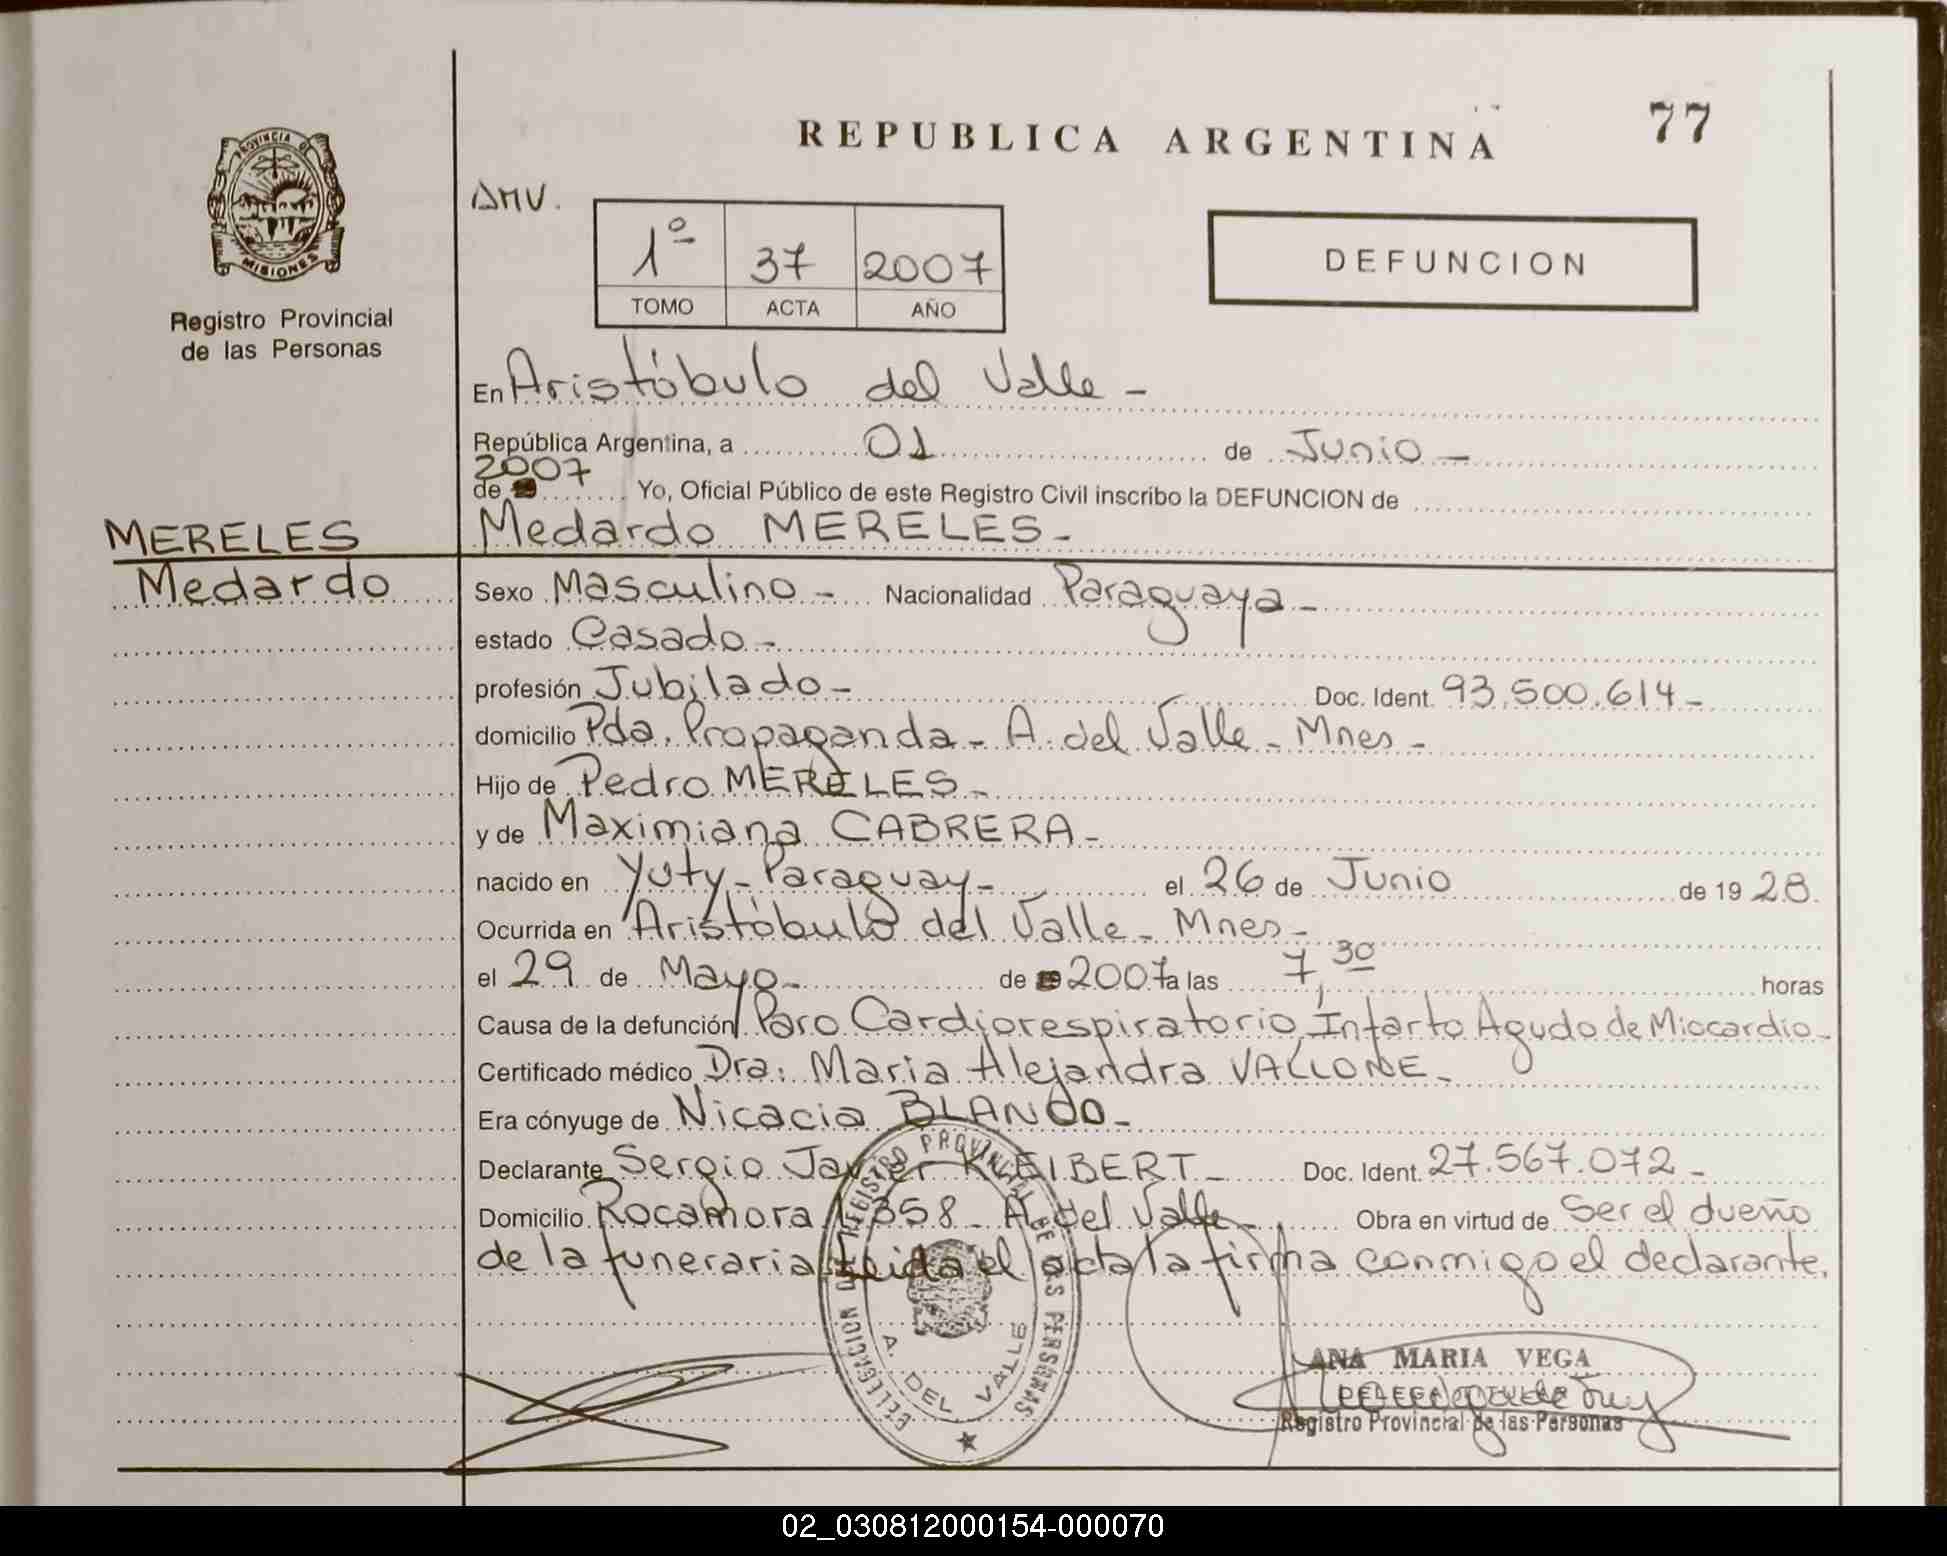 REPUBLICA ARGENTINA
77
PROVINCIA DE
MISIONES
Registro Provincial
de las Personas
AMV.
1º 37 2007
TOMO ACTA AÑO
DEFUNCION
En Aristóbulo del Valle -
República Argentina, a 01 de Junio -
2007
de Yo, Oficial Público de este Registro Civil inscribo la DEFUNCION de
MERELES
Medardo MERELES -
Medardo
Sexo Masculino - Nacionalidad Paraguaya -
estado Casado -
profesión Jubilado - Doc. Ident. 93.500.614 -
domicilio Pda. Propaganda - A. del Valle - Mnes -
Hijo de Pedro MERELES -
y de Maximiana CABRERA -
nacido en Yuty - Paraguay - el 26 de Junio de 19 28.
Ocurrida en Aristóbulo del Valle - Mnes -
el 29 de Mayo - de 2007 a las 7,30 horas
Causa de la defunción Paro Cardiorespiratorio, Infarto Agudo de Miocardio -
Certificado médico Dra: Maria Alejandra VALLONE -
Era cónyuge de Nicacia BLANCO -
Declarante Sergio Javier KLEIBERT - Doc. Ident. 27.567.072 -
Domicilio Rocamora 1358 - A. del Valle - Obra en virtud de Ser el dueño
de la funeraria Leida el acta la firma conmigo el declarante.
DELEGACION DEL REGISTRO PROVINCIAL DE LAS PERSONAS
A. DEL VALLE
ANA MARIA VEGA
DELEGADA TITULAR
Registro Provincial de las Personas
02_030812000154-000070